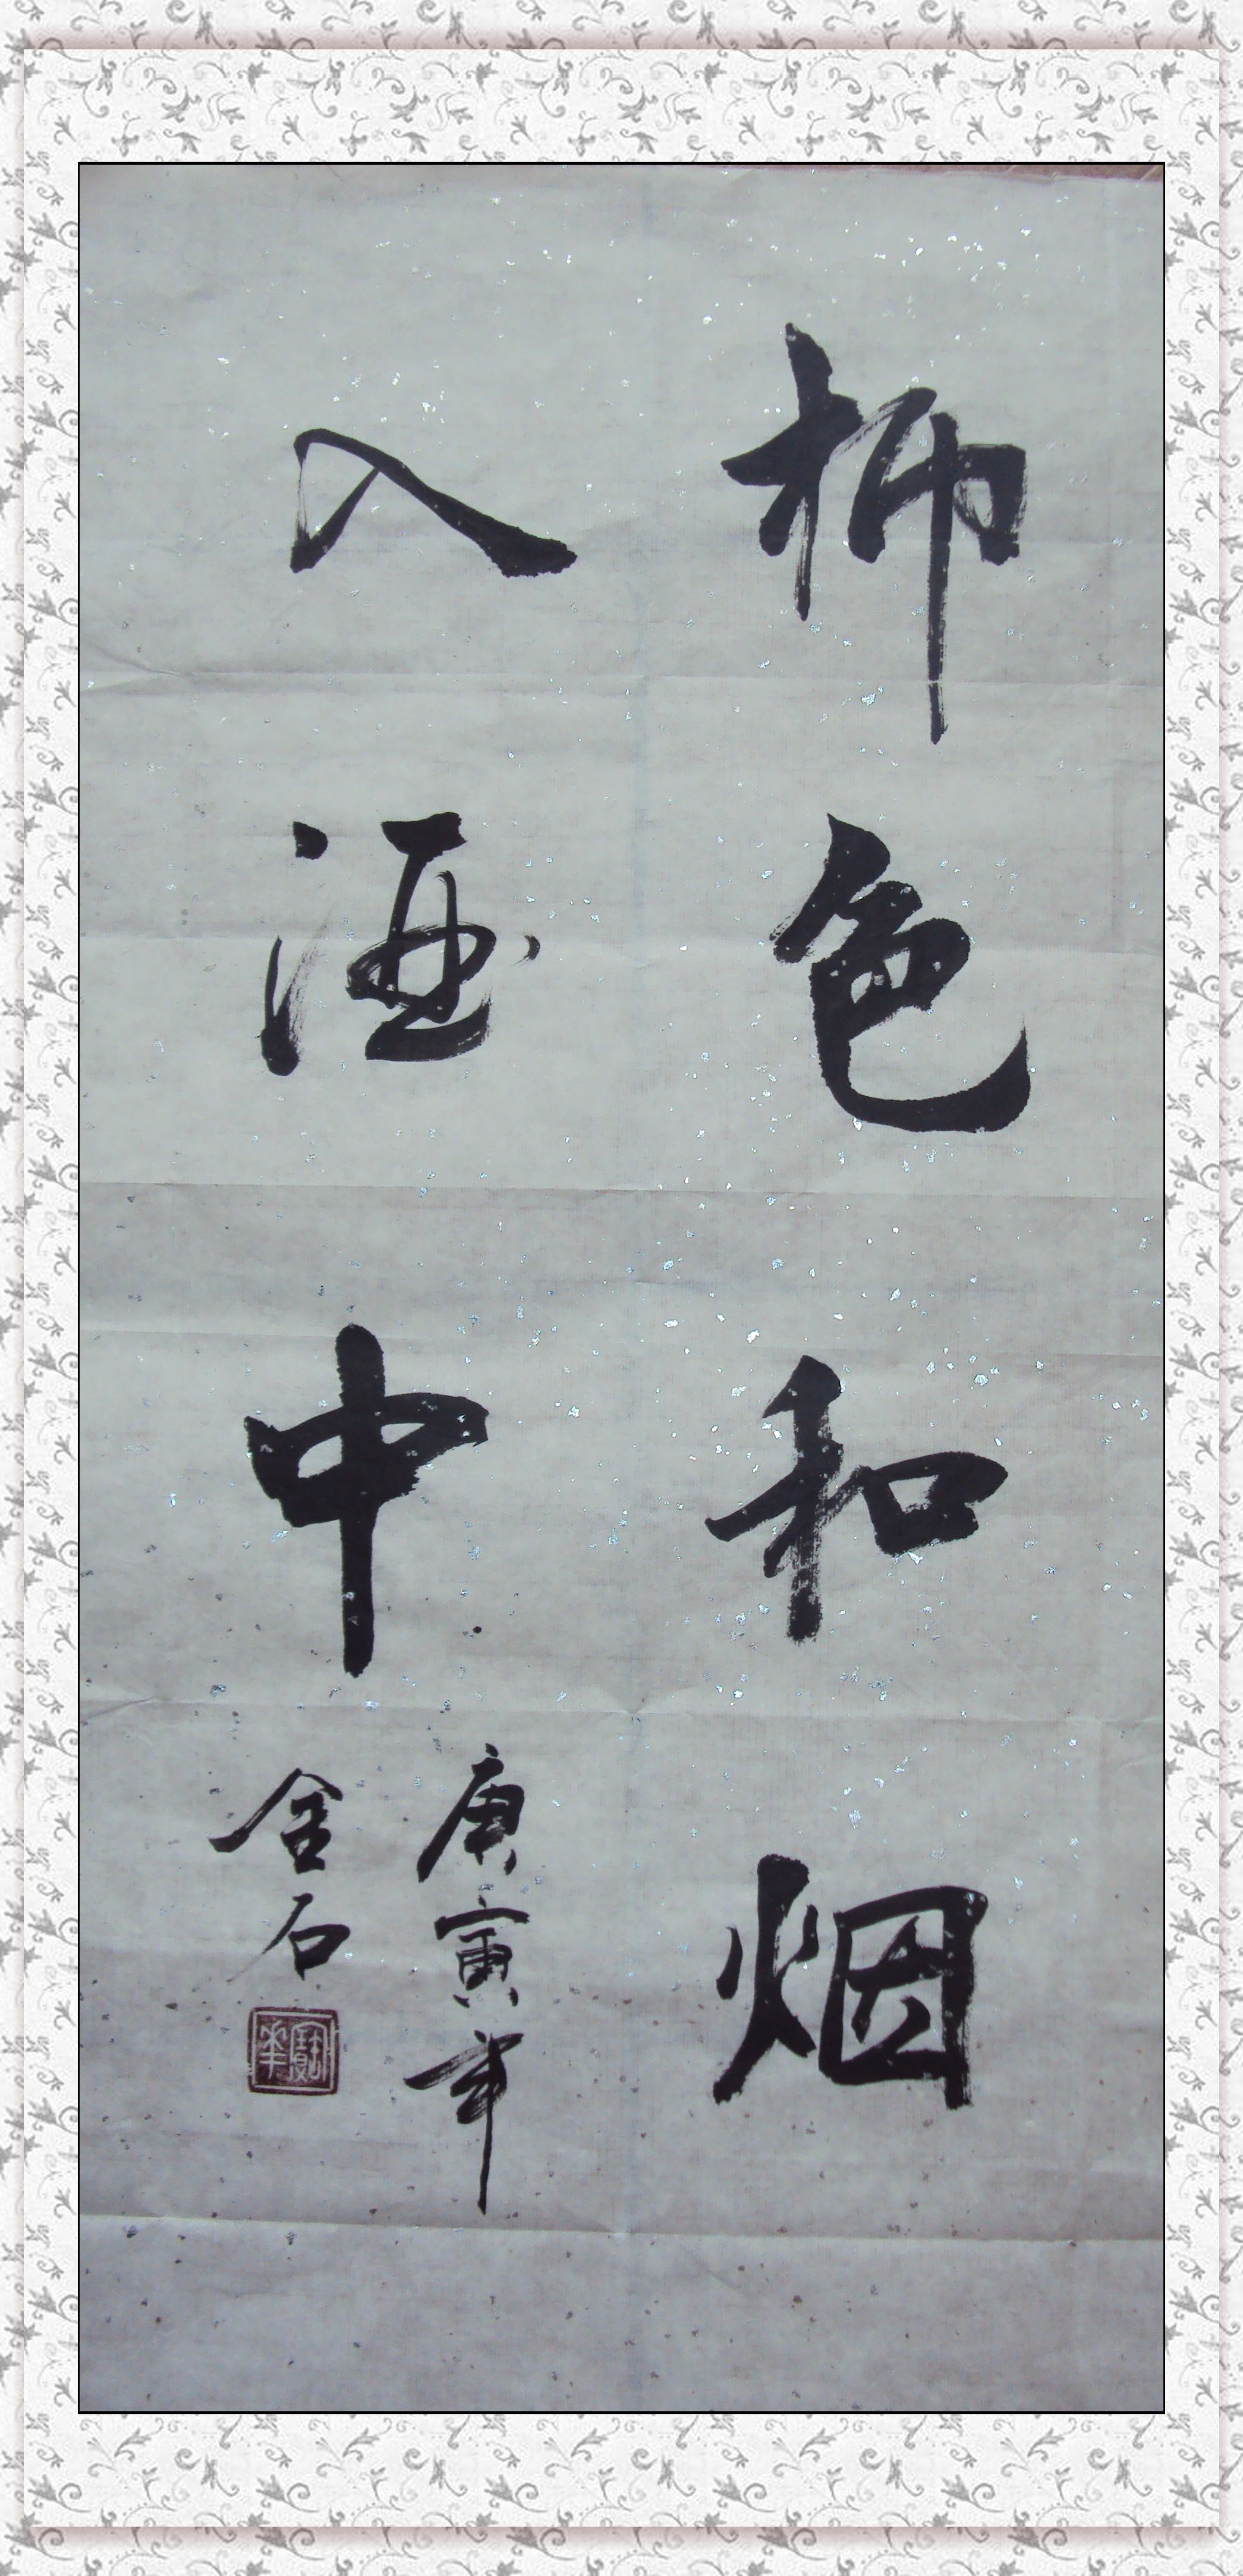 柳色和烟
入酒中
庚寅年
金石